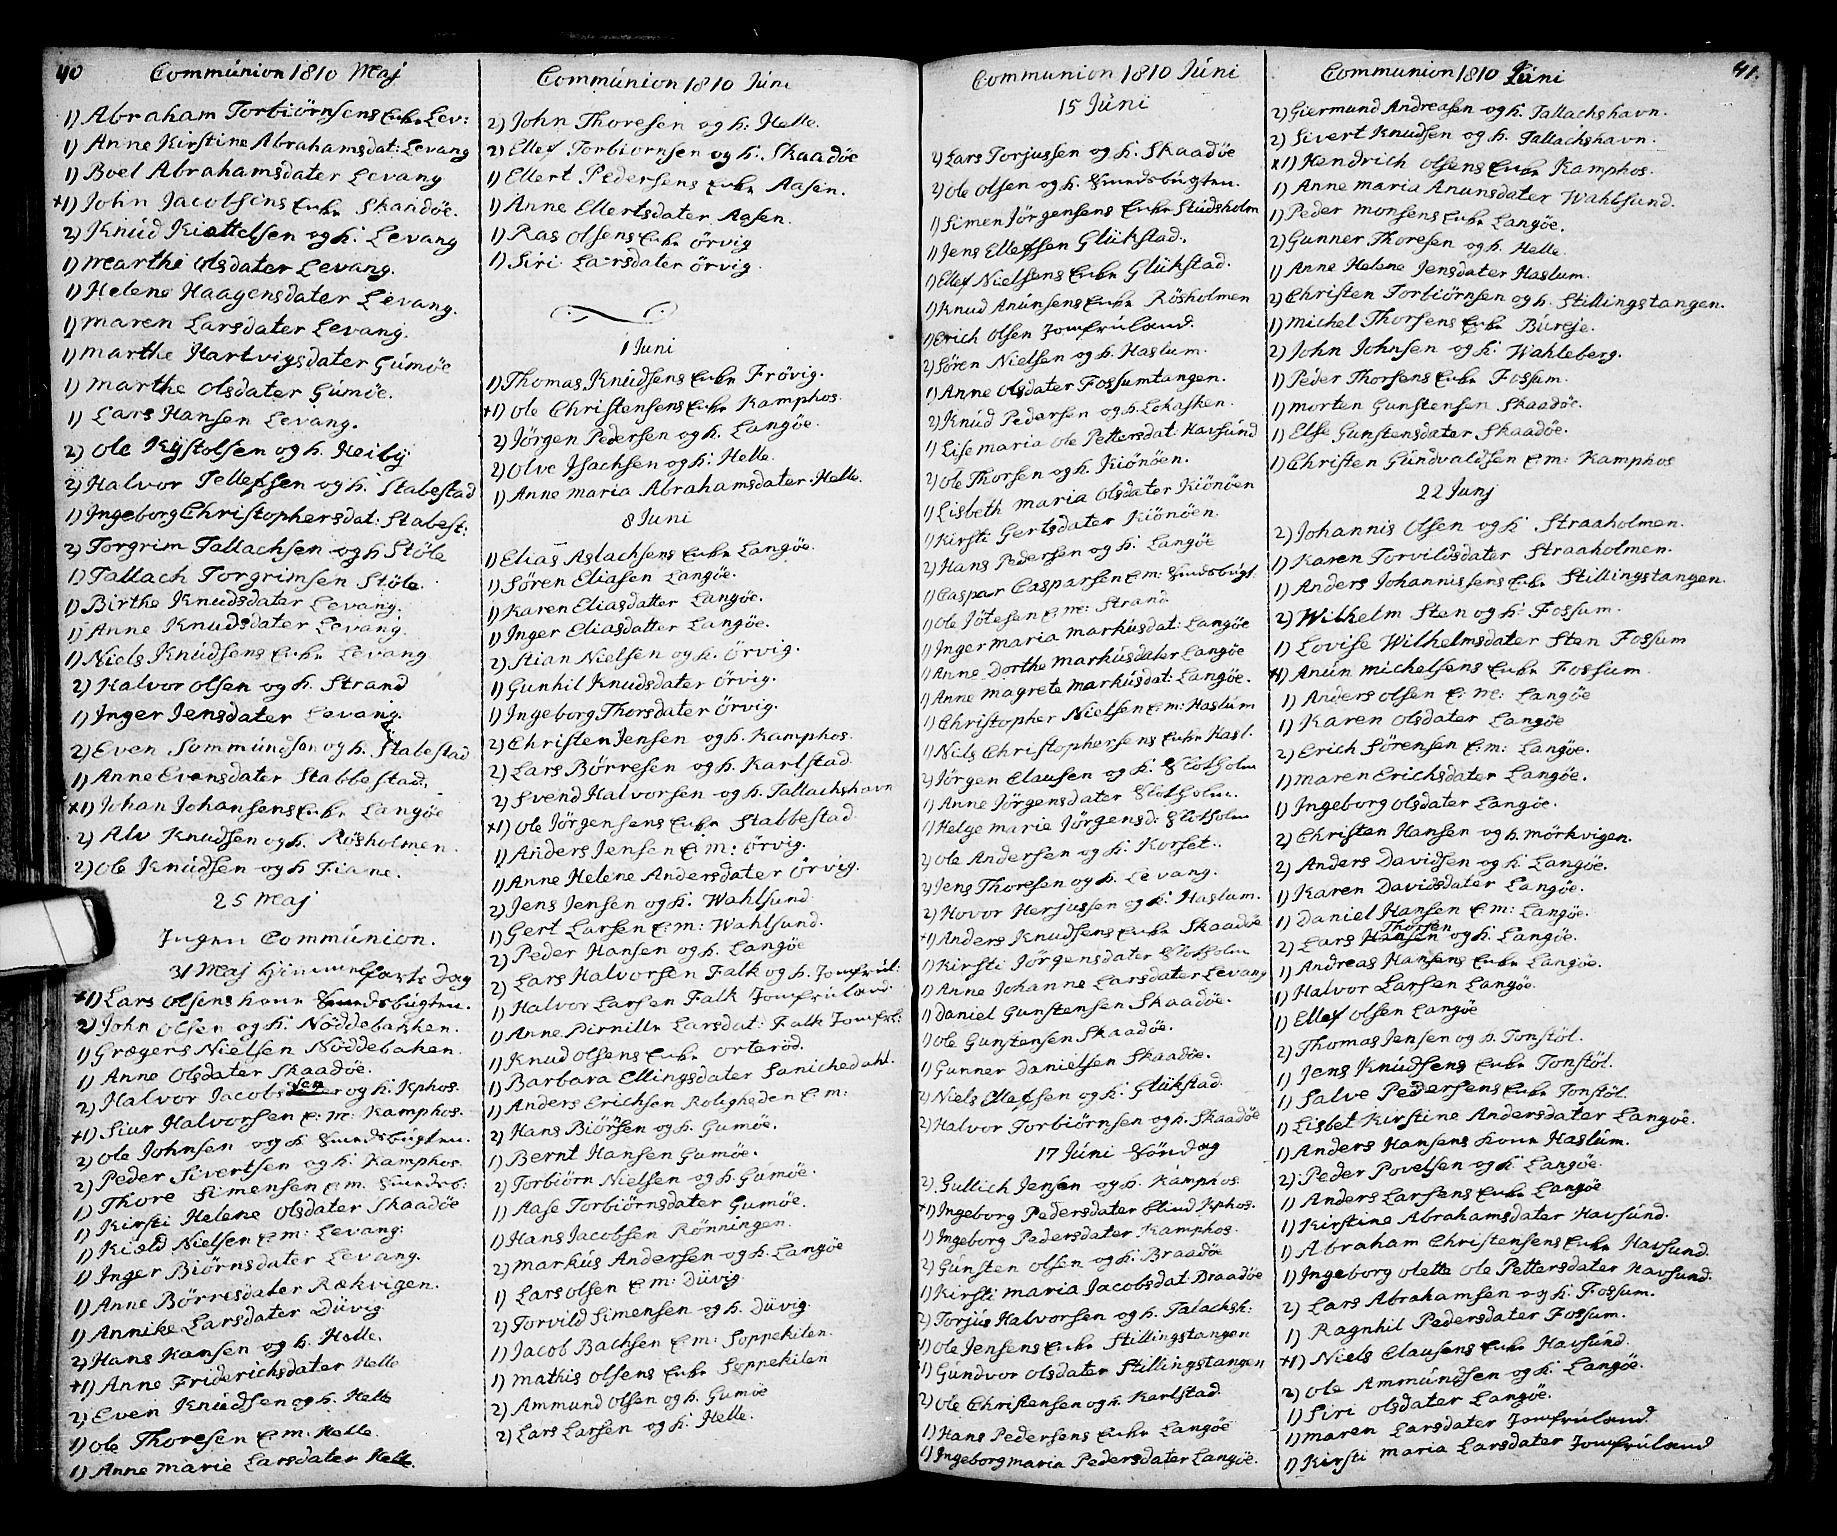 40
Communion 1810 Maj
1) Abraham Torbiörnsens Enke Lev:
1) Anne Kirstine Abrahamsdat: Levang
1) Boel Abrahamsdater Levang
+1) John Jacobsens Enke Skaadöe.
2) Knud Kiettelsen og h. Levang
1) Marthe Olsdater Levang.
1) Helene Haagensdater Levang.
1) Maren Larsdater Levang.
1) Marthe Hartvigsdater Gumöe
1) Marthe Olsdater Gumöe.
1) Lars Hansen Levang.
2) Ole Kystolsen og h. Heiby
2) Halvor Tellefsen og h. Stabestad
1) Ingeborg Christophersdat: Stabest:
2) Torgrim Tallachsen og h Stöle
1) Tallach Torgrimsen Stöle.
1) Birthe Knudsdater Levang.
1) Anne Knudsdater Levang.
1) Niels Knudsens Enke Levang
2) Halvor Olsen og h. Strand
1) Inger Jensdater Levang.
2) Even Sommundsen og h. Stabestad
1) Anne Evensdater Stabbestad.
+1) Johan Johansens Enke Langöe
2) Alv Knudsen og h. Rösholmen.
2) Ole Knudsen og h Fiane.
25 Maj
Ingen Communion.
31 Maj Himmelfarts Dag
+1) Lars Olsens kone Smedsbugten.
2) John Olsen og h. Nöddebakken.
1) Grægers Nielsen Nöddebaken.
1) Anne Olsdater Skaadöe.
2) Halvor Jacobsen og h. Kphos.
+1) Siur Halvorsen E: M: Kamphos.
2) Ole Johnsen og h Smedsbugten.
2) Peder Sivertsen og h. Kamphos.
1) Thore Simensen E: M. Smedsb:
1) Kirsti Helene Olsdater Skaadöe
1) Kield Nielsen E: M: Levang.
1) Inger Biörnsdater Levang.
1) Anne Börresdater Rækvigen.
1) Annike Larsdater Düvig
2) Hans Hansen og h. Helle.
+1) Anne Friderichsdater Helle
2) Even Knudsen og h. Helle
1) Ole Thoresen E. M. Helle.
1) Anne Marie Larsdater Helle.
Communion 1810 Juni
2) John Thoresen og h: Helle.
2) Ellef Torbiornsen og h. Skaadöe
1) Ellert Pedersens Enke Aasen.
1) Anne Ellertsdater Aasen.
1) Ras Olsens Enke örvig
1) Siri Larsdater örvig.
1 Juni
1) Thomas Knudsens Enke Frövig.
+1) Ole Christensens Enke Kamphos.
2) Jörgen Pedersen og h. Langöe.
2) Olve Isachsen og h: Helle.
1) Anne Maria Abrahamsdater Helle.
8 Juni
1) Elias Aslachsens Enke Langöe.
1) Sören Eliasen Langöe.
1) Karen Eliasdatter Langöe.
1) Inger Eliasdatter Langöe.
2) Stian Nielsen og h. örvig.
1) Gunhil Knudsdater örvig.
1) Ingeborg Thorsdater örvig.
2) Christen Jensen og h. Kamphos.
2) Lars Börresen og h. Karlstad.
2) Svend Halvorsen og h. Tallachshavn
+1) Ole Jörgensens Enke Stabbestad.
1) Anders Jensen E: M: örvig.
1) Anne Helene Andersdater örvig.
2) Jens Jensen og h. Wahlsund.
1) Gert Larsen E: M: Wahlsund.
2) Peder Hansen og h. Langöe
2) Lars Halvorsen Falk og h. Jomfrul:
1) Halvor Larsen Falk Jomfruland.
1) Anne Pirnille Larsdat: Falk Jomfrl:
1) Knud Olsens Enke Orteröd.
1) Barbara Ellingsdater Sanickedahl.
1) Anders Erichsen Roligheden E: M:
2) Hans Biörsen og h. Gumöe.
1) Bernt Hansen Gumöe.
2) Torbiörn Nielsen og h. Gumöe.
1) Aase Torbiörnsdater Gumöe.
1) Hans Jacobsen Rönningen.
2) Markus Andersen og h. Langöe
1) Lars Olsen E: M: Düvig.
2) Torvild Simensen og h. Düvig.
1) Jacob Bachsen E: M: Soppekilen.
1) Mathis Olsens Enke Soppekilen
2) Ammund Olsen og h. Gumöe
2) Lars Larsen og h. Helle.
Communion 1810 Juni
15 Juni
2) Lars Torjussen og h. Skaadöe
2) Ole Olsen og h. Smedsbugten.
1) Simen Jörgensens Enke Studsholm
1) Jens Ellefsen Glükstad.
1) Ellef Nielsens Enke Glükstad.
1) Knud Anunsens Enke Rösholmen
1) Erich Olsen Jomfruland.
2) Sören Nielsen og h. Haslum.
1) Anne Olsdater Fossumtangen.
2) Knud Pedersen og h. Lokasken.
1) Lise Maria Ole Pettersdat: Havsund
2) Ole Thorsen og h. Kiönöen.
1) Lisbeth Maria Olsdater Kiönöen
1) Kirsti Gertsdater Kiönöen.
2) Hans Pedersen og h. Langöe
1) Caspar Caspersen E: M: Smedsbugt
1) Ole Jötesen E: M: Strand.
1) Inger Maria Markusdat: Langöe
1) Anne Dorthe Markusdater Langöe
1) Anne Magrete Markusdat: Langöe.
1) Christopher Nielsen E: M: Haslum
1) Nils Christophersens Enke Hasl.
2) Jörgen Clausen og h. Slotholm
1) Anne Jörgensdater Slotholm.
1) Helge Marie Jörgensd: Slotholm
2) Ole Andersen og h. Korset.
2) Jens Thoresen og h. Levang.
2) Hovor Herjussen og h. Haslum.
+1) Anders Knudsens Enke Skaadöe
1) Kirsti Jörgensdater Slotholm
1) Anne Johanne Larsdater Levang
1) Daniel Gunstensen Skaadöe.
1) Ole Gunstensen Skaadöe.
1) Gunner Danielsen Skaadöe.
2) Niels Ellefsen og h. Glükstad.
2) Halvor Torbiörnsen og h. Skaadöe
17 Juni Söndag
2) Gullich Jensen og h. Kamphos.
+1) Ingeborg Pedersdater Blind Kphos.
1) Ingeborg Pedersdater Kamphos.
2) Gunsten Olsen og h. Braadöe
1) Kirsti Maria Jacobsdat: Braadöe
2) Torjus Halvorsen og h. Talachsh:
1) Ole Jensens Enke Stillingstangen
1) Gundvor Olsdater Stillingstangen
2) Ole Christensen og h. Karlstad.
1) Hans Pedersens Enke Langöe
1) Ingeborg Maria Pedersdater Langöe.
41.
Communion 1810 Juni
2) Giermund Andreasen og h. Tallachshavn.
2) Sivert Knudsen og h. Tallachshavn.
+1) Hendrich Olsens Enke Kamphos.
1) Anne Maria Anunsdater Wahlsund.
1) Peder Monsens Enke Langöe.
2) Gunner Thoresen og h. Helle.
1) Anne Helene Jensdater Haslum.
2) Christen Torbiörnsen og h. Stillingstangen.
1) Michel Thorsens Enke Bureje.
2) John Johnsen og h. Wahleberg.
1) Peder Thorsens Enke Fossum.
1) Morten Gunstensen Skaadöe.
1) Else Gunstensdater Skaadöe.
1) Christen Gundvaldsen E: M: Kamphos
22 Junj
2) Johannis Olsen og h. Straaholmen.
1) Karen Torvildsdater Straaholmen.
1) Anders Johannissens Enke Stillingstangen.
2) Wilhelm Sten og h. Fossum.
1) Lovise Wilhelmsdater Sten Fossum
+1) Anun Michelsens Enke Fossum.
1) Anders Olsen E: M: Langöe
1) Karen Olsdater Langöe
2) Erich Sörensen E: M: Langöe.
1) Maren Erichsdater Langöe.
1) Ingeborg Olsdater Langöe.
2) Christen Hansen og h. Mörkvigen.
2) Anders Davidsen og h. Langöe.
1) Karen Davidsdater Langöe.
1) Daniel Hansen E: M: Langöe.
2) Lars Hansen Thorsen og h. Langöe.
1) Andreas Hansens Enke Langöe.
1) Halvor Larsen Langöe.
1) Ellef Olsen Langöe
2) Thomas Jensen og h. Tonstöl.
1) Jens Knudsens Enke Tonstöl.
1) Salve Pedersens Enke Tonstöl.
1) Lisbet Kirstine Andersdater Langöe.
1) Anders Hansens kone Haslum.
2) Peder Povelsen og h. Langöe.
1) Anders Larsens Enke Langöe
1) Kirstine Abrahamsdater Havsund.
1) Abraham Christensens Enke Havsund.
1) Ingeborg Olette Ole Pettersdater Havsund.
2) Lars Abrahamsen og h. Fossum.
1) Ragnhil Pedersdater Fossum.
+1) Niels Clausens Enke Havsund.
2) Ole Ammundsen og h. Langöe.
1) Siri Olsdater Langöe.
1) Maren Larsdater Jomfruland
1) Kirsti Maria Larsdater Jomfruland